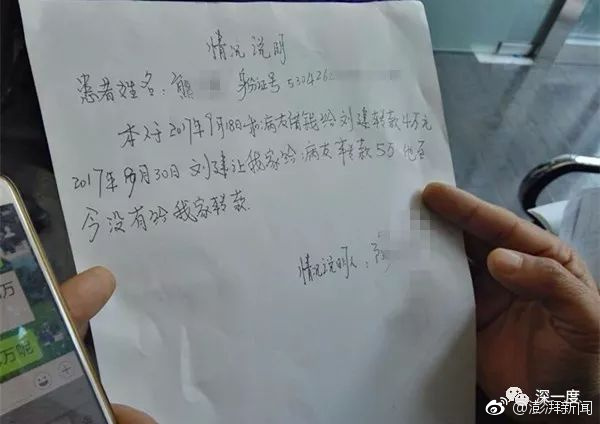 情况说明
患者姓名：熊 身份证号 530426
本人于2017年9月18日 病友借钱给刘建转款4万元
2017年9月30日刘建让我家给病友转款5万他至
今没有给我家转款
情况说明人：
万
万呢
深一度
@澎湃新闻